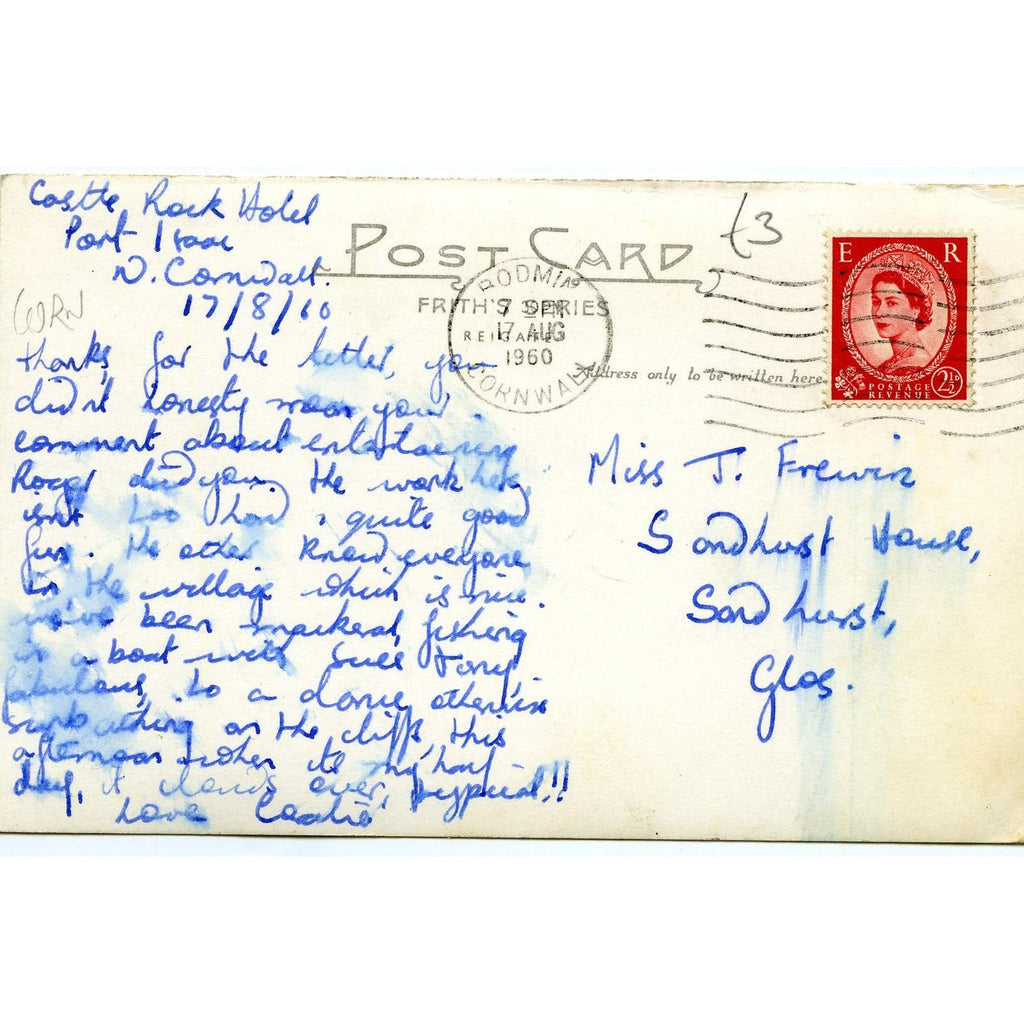 Castle Rock Hotel
Port Isaac
N. Cornwall.
17/8/60
CORN
£3
POST CARD
FRITH'S SERIES
REIGATE
BODMIN
7 PM
17 AUG
1960
CORNWALL
Address only to be written here
E R
POSTAGE
REVENUE
2½D
thanks for the letter, you
didn't honesty mean your
comment about entertaining
Roger did you. The work here
isn't too hard, quite good
fun. The other know everyone
in the village which is nice.
We've been mackeral fishing
in a boat with Tony,
fabulous, to a dance, otherwise
sunbathing on the cliffs, this
afternoon when its my half
day, it clouds over, typical!!
Love
Miss J. Frewin
Sandhurst House,
Sandhurst,
Glos.